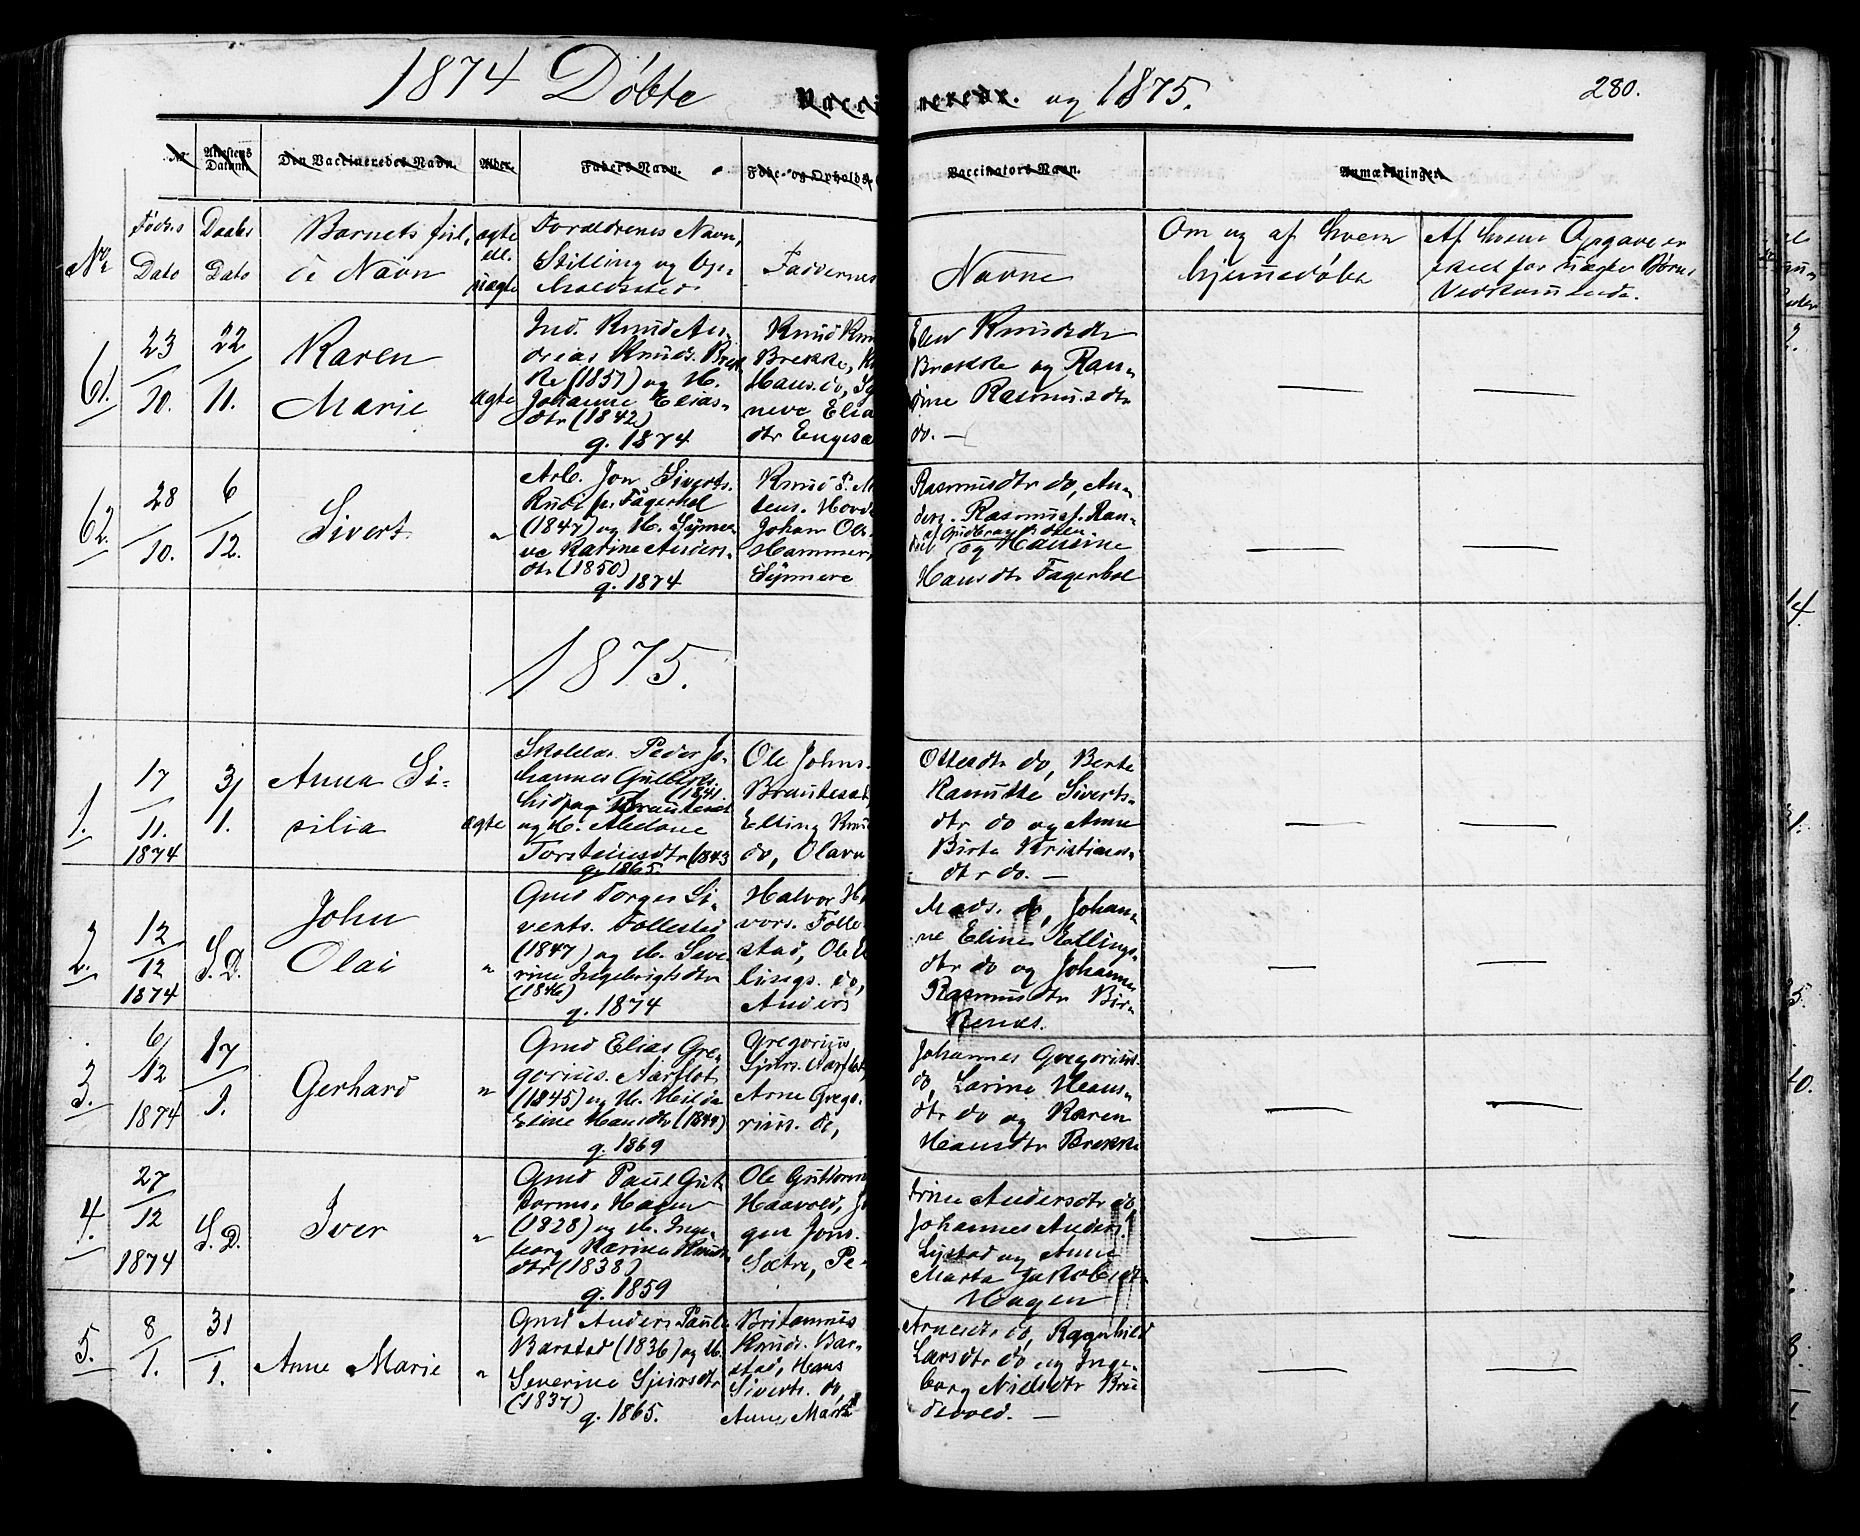 1874 Döbte Vacci nerede. og 1875. 280.
No. Attestens Datum. Den Vaccineredes Navn. Alder. Faders Navn. Føde- og Opholds- Vaccinators Navn. Anmærkninger.
No Føds Dato
Daabs Dato
Barnets ful-
de Navn
ægte
ell.
uægte
Forældrenes Navn,
Stilling og Op-
holdssted
Faddernes
Navne
Om og af hvem
hjemmedøbt
Af hvem Opgave er
skeet for uægte Børns
Vedkommende.
61.
23/10.
22/11.
Karen
Marie
ægte
Ind. Knud An-
dreas Knuds. Brek-
ke (1857) og H.
Johanne Elias-
dtr (1842)
g. 1874
Knud Knu
Brekke, K
Hans. do, Sy
neve Elia
dtr Engesæ
Elen Knudsdtr
Brekke og Ran-
dine Rasmusdtr
do. —
62.
28/10.
6/12.
Sivert
"
Arb. Jon Siverts.
Rudi p. Fagerhol
(1847) og H. Synne-
ve Karine Anders-
dtr (1850)
g. 1874
Knud P. M
tens. Hovd
Johan Ole
Hammer,
Synneve
Rasmusdtr do, An-
ders. Rasmus f. Ran-
og Hansine
Hansdtr Fagerhol
1875.
1.
17/11.
1874
3/1.
Anna Si-
silia
ægte
Skolelær. Peder Jo-
hannes Gulliks.
(1841.
og H. Aledane
Torsteinsdtr (1843
g. 1865.
Ole Johns.
Brautesæt,
Elling Knu
do, Olava
Ottesdtr do, Berte
Knudtke Siverts-
dtr do og Anne
Birte Kristians-
dtr do. —
2.
12/12
1874
S. D.
John
Olai
"
Gmd Torger Si-
verts. Follestad
(1847) og H. Seve-
rine Ingebrigtsdtr
(1846)
g. 1874
Halvor H
vors. Folle-
stad, Ole E
lings. do,
Anders
Mads. do, Johan-
ne Eline Ellings-
dtr do og Johanne
Rasmusdtr Bir-
kenes.
3.
6/12
1874
17/1.
Gerhard
"
Gmd Elias Gre-
gorius. Aarflot
(1845) og H. Hilda
Eline Hansdtr (1849)
g. 1869
Gregorius
Sjurs. Aarflot,
Arne Grego-
rius. do,
Johannes Gregorius.
do, Larine Hans-
dtr do og Karen
Hansdtr Brekke
4.
27/12
1874
S. D.
Iver
"
Gmd Paul Gut-
torms. Hagen
(1828) og H. Inge-
borg Karine Knuds-
dtr (1838)
g. 1859
Ole Guttorm
Haavold, J
gen Jons.
Sætre, Pe-
trine Andersdtr do,
Johannes Anders.
Lystad og Anne
Marta Jakobsdtr
Hagen
5.
8/1.
31/1.
Anne Marie
"
Gmd Anders Pauls.
Barstad (1836) og H.
Severine Sjursdtr
(1837)
g. 1865.
Britannus
Knuds. Bar-
stad, Hans
Siverts. do,
Anne Marta
Arnesdtr do, Ragnhild
Larsdtr do og Inge-
borg Nielsdtr Bru-
devold. —